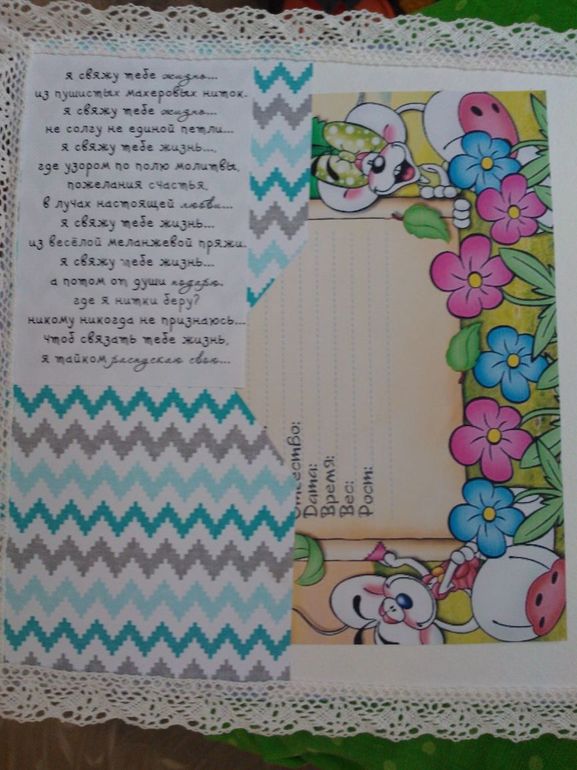 я свяжу тебе жизнь...
из пушистых махеровых ниток.
я свяжу тебе жизнь...
не солгу не единой петли...
я свяжу тебе жизнь...,
где узором по полю молитвы,
пожелания счастья,
в лучах настоящей любви...
я свяжу тебе жизнь...
из весёлой меланжевой пряжи.
я свяжу тебе жизнь...
а потом от души подарю.
где я нитки беру?
никому никогда не признаюсь...
чтоб связать тебе жизнь,
я тайком распускаю свою...
Отчество:
Дата:
Время:
Вес:
Рост: